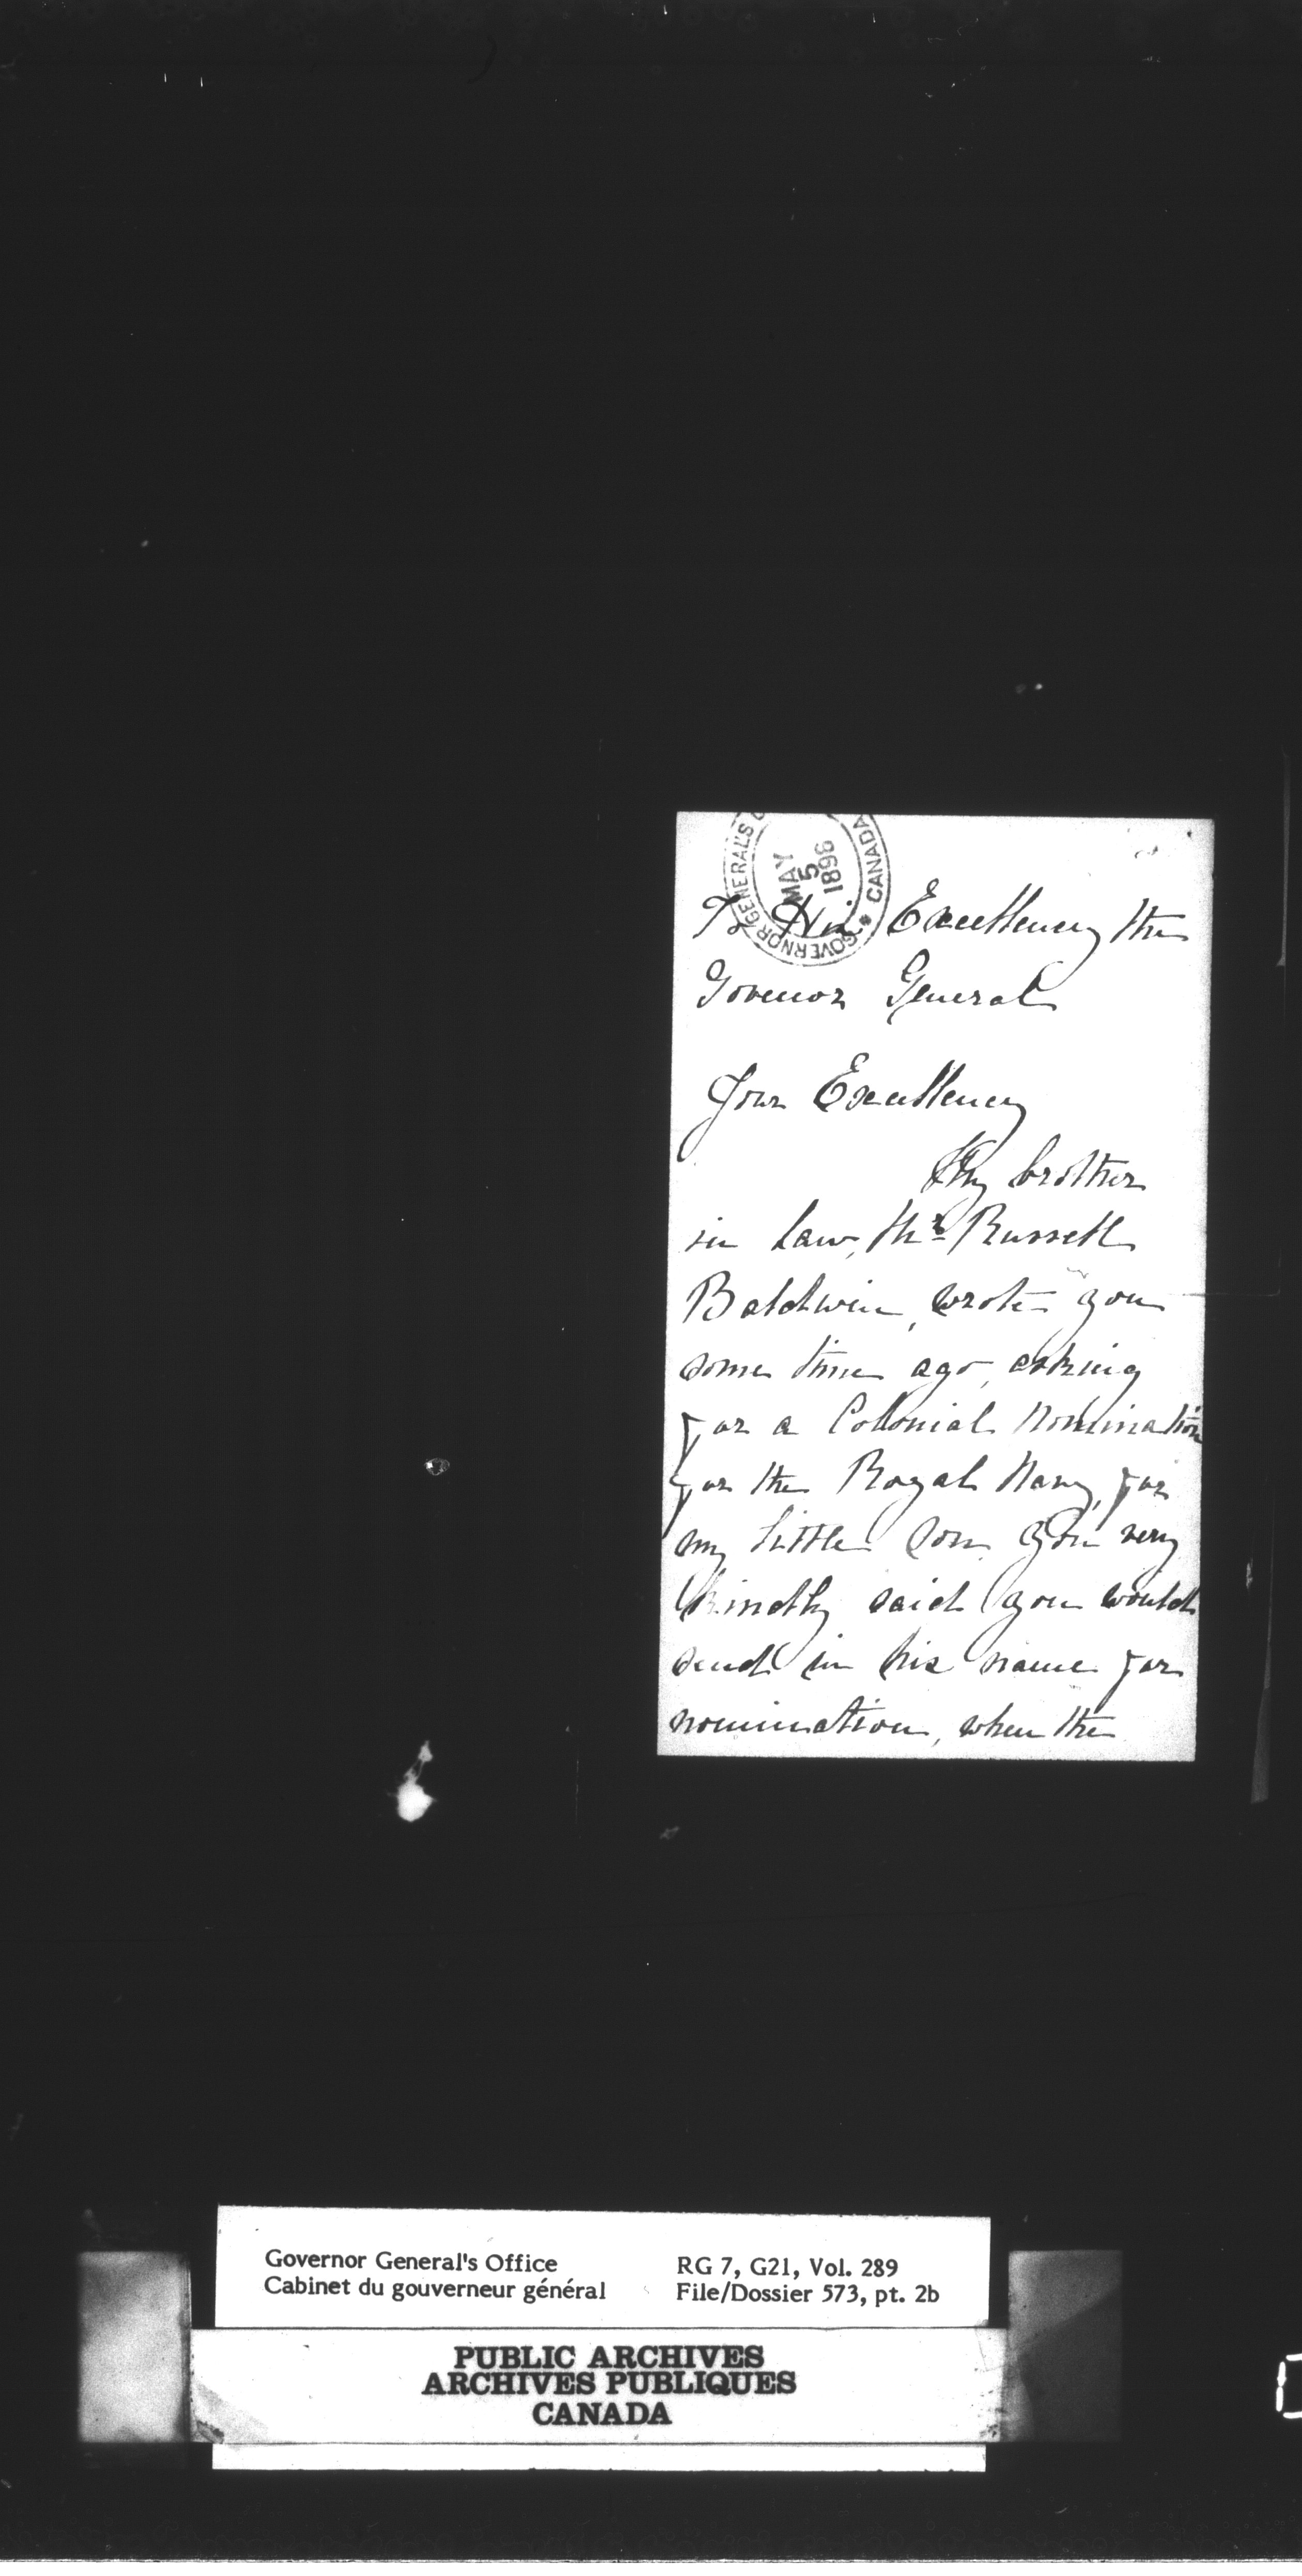 GOVERNOR GENERAL'S
CANADA
MAY
5
1896
To His Excellency the
Govenor General
Your Excellency
My brother
in law, Mr Russell
Baldwin, wrote you
some time ago, asking
for a Colonial Nomination
for the Royal Navy, for
my little son. You very
kindly said you would
send in his name for
nomination, when the
Governor General's Office
Cabinet du gouverneur général
RG 7, G21, Vol. 289
File/Dossier 573, pt. 2b
PUBLIC ARCHIVES
ARCHIVES PUBLIQUES
CANADA